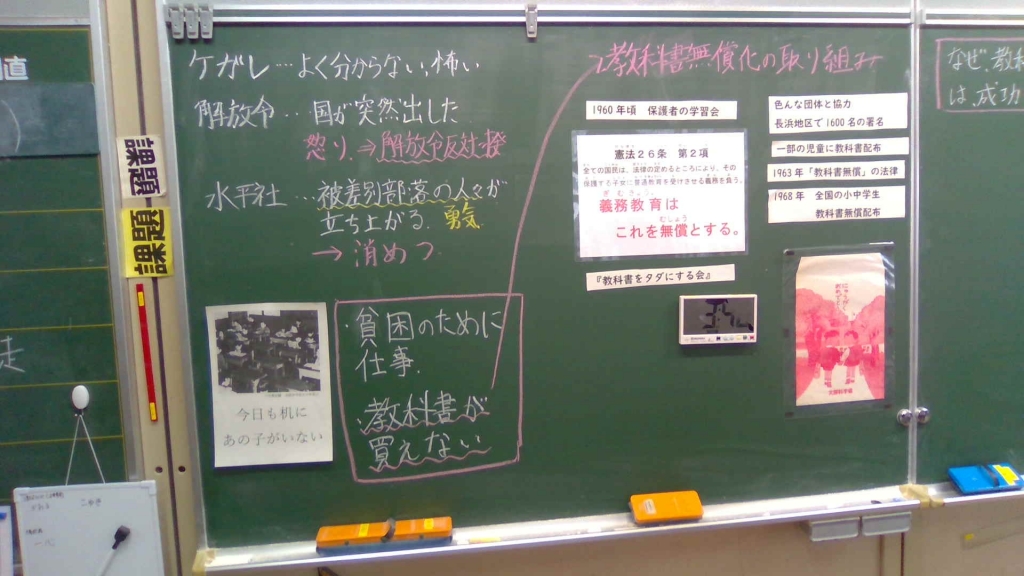 直
課題
課題
走
ケガレ…よく分からない,怖い
解放令…国が突然出した
怒り.⇒解放令反対一揆
水平社…被差別部落の人々が
立ち上がる.勇気
→消めつ
今日も机に
あの子がいない
・貧困のために
仕事.
・教科書が
買えない
教科書無償化の取り組み
1960年頃 保護者の学習会
憲法26条 第2項
全ての国民は、法律の定めるところにより、その
保護する子女に普通教育を受けさせる義務を負う。
ぎむきょういく
義務教育は
むしょう
これを無償とする。
『教科書をタダにする会』
色んな団体と協力
長浜地区で1600名の署名
一部の児童に教科書配布
1963年「教科書無償」の法律
1968年 全国の小中学生
教科書無償配布
なぜ、教科
は、成功